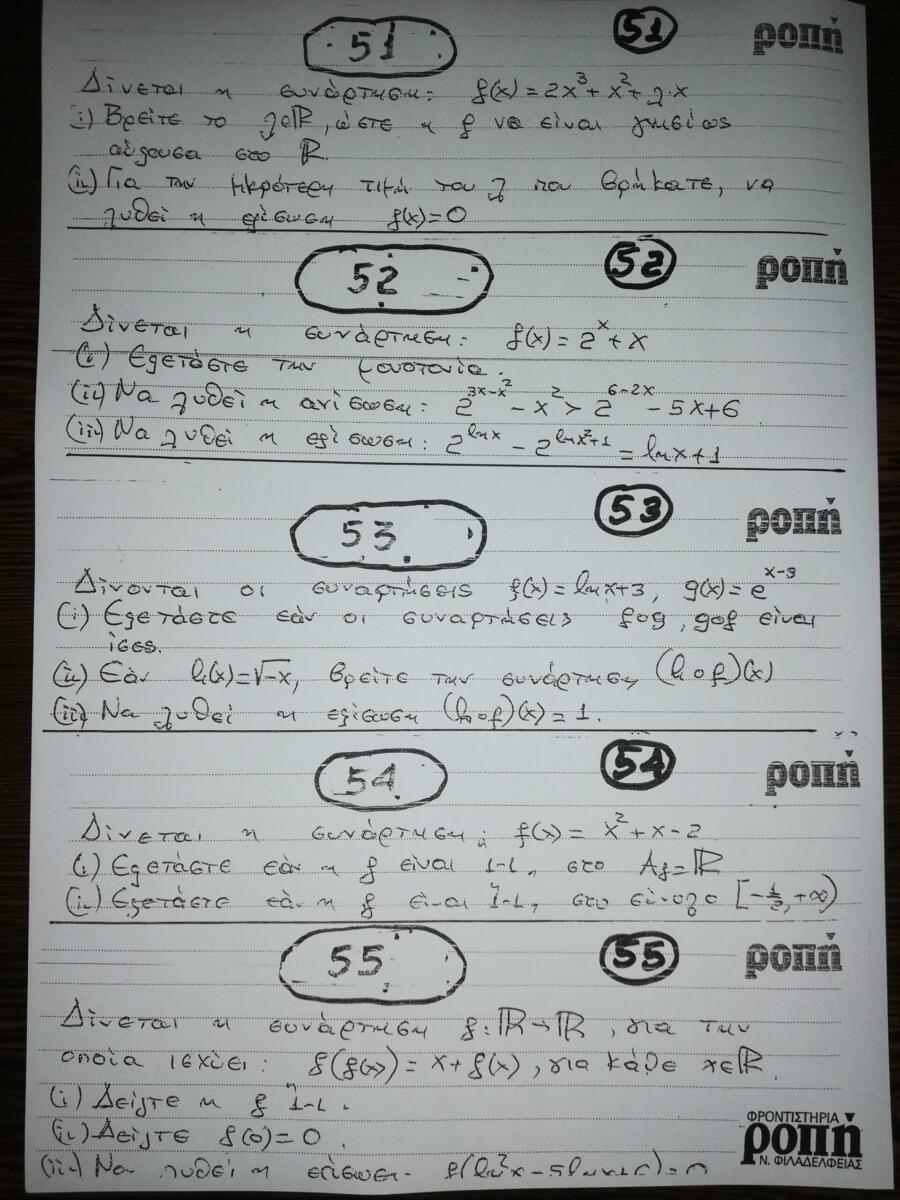 51 51 ροπή
Δίνεται η συνάρτηση: f(x)=2x³+x²+λ·x
i) Βρείτε το λ∈ℝ, ώστε η f να είναι γνησίως
αύξουσα στο ℝ.
(ii) Για την μικρότερη τιμή του λ που βρήκατε, να
λυθεί η εξίσωση f(x)=0
52 52 ροπή
Δίνεται η συνάρτηση: f(x)=2^x+x
(i) Εξετάστε την μονοτονία.
(ii) Να λυθεί η ανίσωση: 2^{3x-x²} - x² > 2^{6-2x} - 5x+6
(iii) Να λυθεί η εξίσωση: 2^{lnx} - 2^{lnx²+1} = lnx+1
53 53 ροπή
Δίνονται οι συναρτήσεις f(x)=lnx+3, g(x)=e^{x-3}
(i) Εξετάστε εάν οι συναρτήσεις fog, gof είναι
ίσες.
(ii) Εάν h(x)=√-x, βρείτε την συνάρτηση (hof)(x)
(iii) Να λυθεί η εξίσωση (hof)(x)=1.
54 54 ροπή
Δίνεται η συνάρτηση: f(x)=x²+x-2
(i) Εξετάστε εάν η f είναι "1-1" στο Af=ℝ
(ii) Εξετάστε εάν η f είναι "1-1" στο σύνολο [-½,+∞)
55 55 ροπή
Δίνεται η συνάρτηση f:ℝ→ℝ, για την
οποία ισχύει: f(f(x))=x+f(x), για κάθε x∈ℝ
(i) Δείξτε η f "1-1".
(ii) Δείξτε f(0)=0.
(iii) Να λυθεί η εξίσωση f(ln²x-5lnx+6)=0
ΦΡΟΝΤΙΣΤΗΡΙΑ
ροπή
Ν. ΦΙΛΑΔΕΛΦΕΙΑΣ